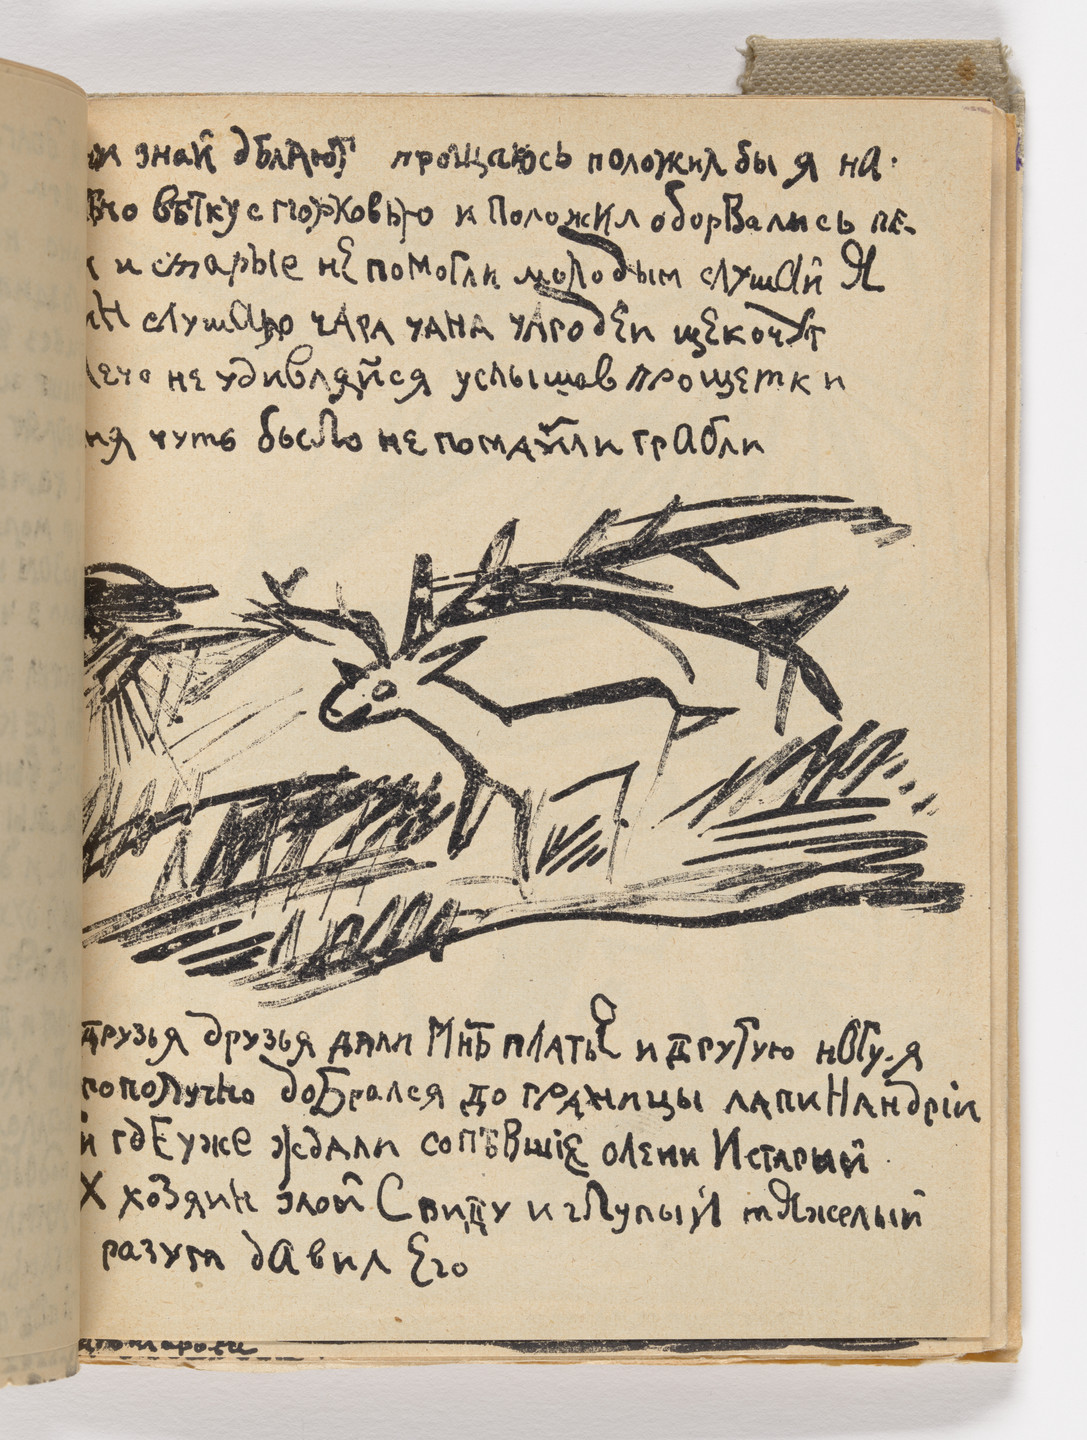 знай дѣлают прощаюсь положил бы я на-
вѣтку с морковью и положил оборвались пе-
и старые не помогли молодым слушай я
слушаю чара чана чародеи щекочут
не удивляйся услышав про щетки
чуть было не помайли грабли
друзья друзья дали мнѣ платье и другую ногу. я
пополучно добрался до границы лапиландріи
й где уже ждали сопѣвшіе олени и старый
х хозяин злой с виду и глупый тяжелый
разум давил его